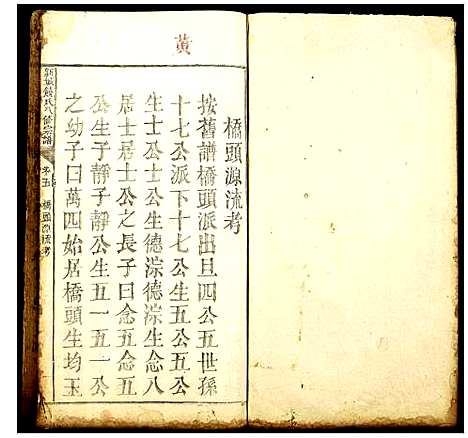 黃
橋頭源流考
按舊譜橋頭派出旦四公五世孫
十七公派下十七公生五公五公
生士公士公生德淙德淙生念八
居士居士公之長子曰念五念五
公生于靜公生五一五一公
之幼子曰萬四始居橋頭生均玉
氏八修宗譜 卷五 橋頭源流考